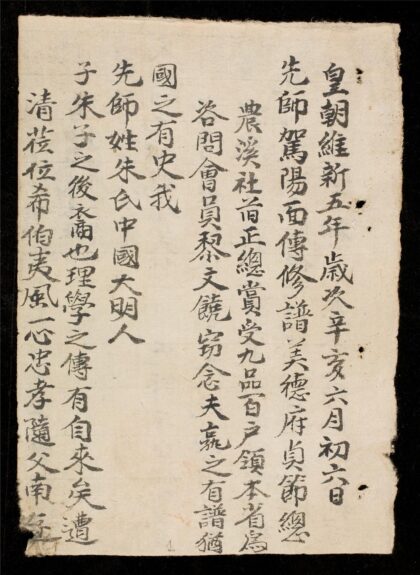 皇朝維新五年歲次辛亥六月初六日
先師駕陽面傳修譜美德府貞節總
農溪社首正總賞受九品百戶領本省爲
咨問會員黎文饒窃念夫家之有譜猶
國之有史我
先師姓朱氏中國大明人
子朱子之後裔也理學之傳有自來矣遭
清莅位希伯夷風一心忠孝隨父南